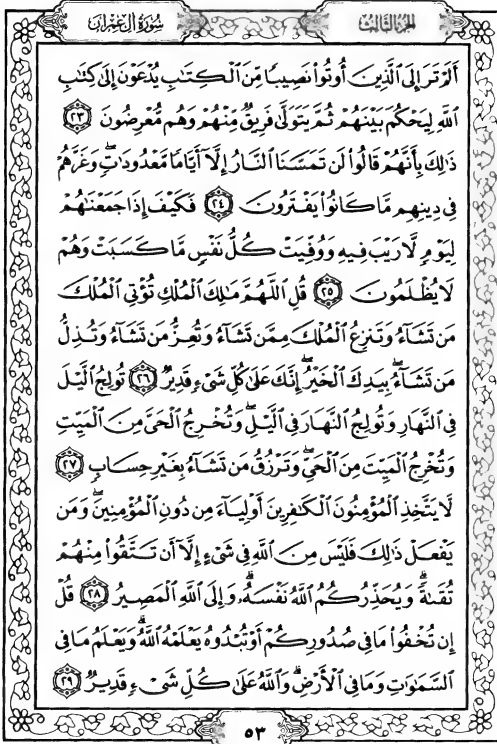 سُورَةُ آلِ عِمْرَان
الجُزْءُ الثَّالِث
أَلَمْ تَرَ إِلَى ٱلَّذِينَ أُوتُوا۟ نَصِيبًا مِّنَ ٱلْكِتَٰبِ يُدْعَوْنَ إِلَىٰ كِتَٰبِ
ٱللَّهِ لِيَحْكُمَ بَيْنَهُمْ ثُمَّ يَتَوَلَّىٰ فَرِيقٌ مِّنْهُمْ وَهُم مُّعْرِضُونَ ٢٣
ذَٰلِكَ بِأَنَّهُمْ قَالُوا۟ لَن تَمَسَّنَا ٱلنَّارُ إِلَّآ أَيَّامًا مَّعْدُودَٰتٍ ۖ وَغَرَّهُمْ
فِى دِينِهِم مَّا كَانُوا۟ يَفْتَرُونَ ٢٤ فَكَيْفَ إِذَا جَمَعْنَٰهُمْ
لِيَوْمٍ لَّا رَيْبَ فِيهِ وَوُفِّيَتْ كُلُّ نَفْسٍ مَّا كَسَبَتْ وَهُمْ
لَا يُظْلَمُونَ ٢٥ قُلِ ٱللَّهُمَّ مَٰلِكَ ٱلْمُلْكِ تُؤْتِى ٱلْمُلْكَ
مَن تَشَآءُ وَتَنزِعُ ٱلْمُلْكَ مِمَّن تَشَآءُ وَتُعِزُّ مَن تَشَآءُ وَتُذِلُّ
مَن تَشَآءُ ۖ بِيَدِكَ ٱلْخَيْرُ ۖ إِنَّكَ عَلَىٰ كُلِّ شَىْءٍ قَدِيرٌ ٢٦ تُولِجُ ٱلَّيْلَ
فِى ٱلنَّهَارِ وَتُولِجُ ٱلنَّهَارَ فِى ٱلَّيْلِ ۖ وَتُخْرِجُ ٱلْحَىَّ مِنَ ٱلْمَيِّتِ
وَتُخْرِجُ ٱلْمَيِّتَ مِنَ ٱلْحَىِّ ۖ وَتَرْزُقُ مَن تَشَآءُ بِغَيْرِ حِسَابٍ ٢٧
لَّا يَتَّخِذِ ٱلْمُؤْمِنُونَ ٱلْكَٰفِرِينَ أَوْلِيَآءَ مِن دُونِ ٱلْمُؤْمِنِينَ ۖ وَمَن
يَفْعَلْ ذَٰلِكَ فَلَيْسَ مِنَ ٱللَّهِ فِى شَىْءٍ إِلَّآ أَن تَتَّقُوا۟ مِنْهُمْ
تُقَىٰةً ۗ وَيُحَذِّرُكُمُ ٱللَّهُ نَفْسَهُۥ ۗ وَإِلَى ٱللَّهِ ٱلْمَصِيرُ ٢٨ قُلْ
إِن تُخْفُوا۟ مَا فِى صُدُورِكُمْ أَوْ تُبْدُوهُ يَعْلَمْهُ ٱللَّهُ ۗ وَيَعْلَمُ مَا فِى
ٱلسَّمَٰوَٰتِ وَمَا فِى ٱلْأَرْضِ ۗ وَٱللَّهُ عَلَىٰ كُلِّ شَىْءٍ قَدِيرٌ ٢٩
٥٣